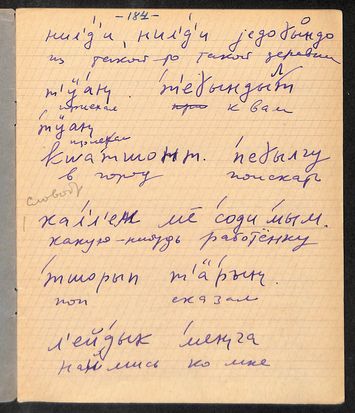 -184-
нил'д'и, нил'д'и jедоɣындо
из такой-то такой деревни
т'ӱаң. т'еɣындыт
приехал к вам
т'ӱаң
приехал
kwатшонт. пеɣылгу
в город поискать
слободу
кай л'ем содимым.
какую-нибудь работёнку
тшорып т'ӓрың.
поп сказал
л'ейдык меңга
наймись ко мне